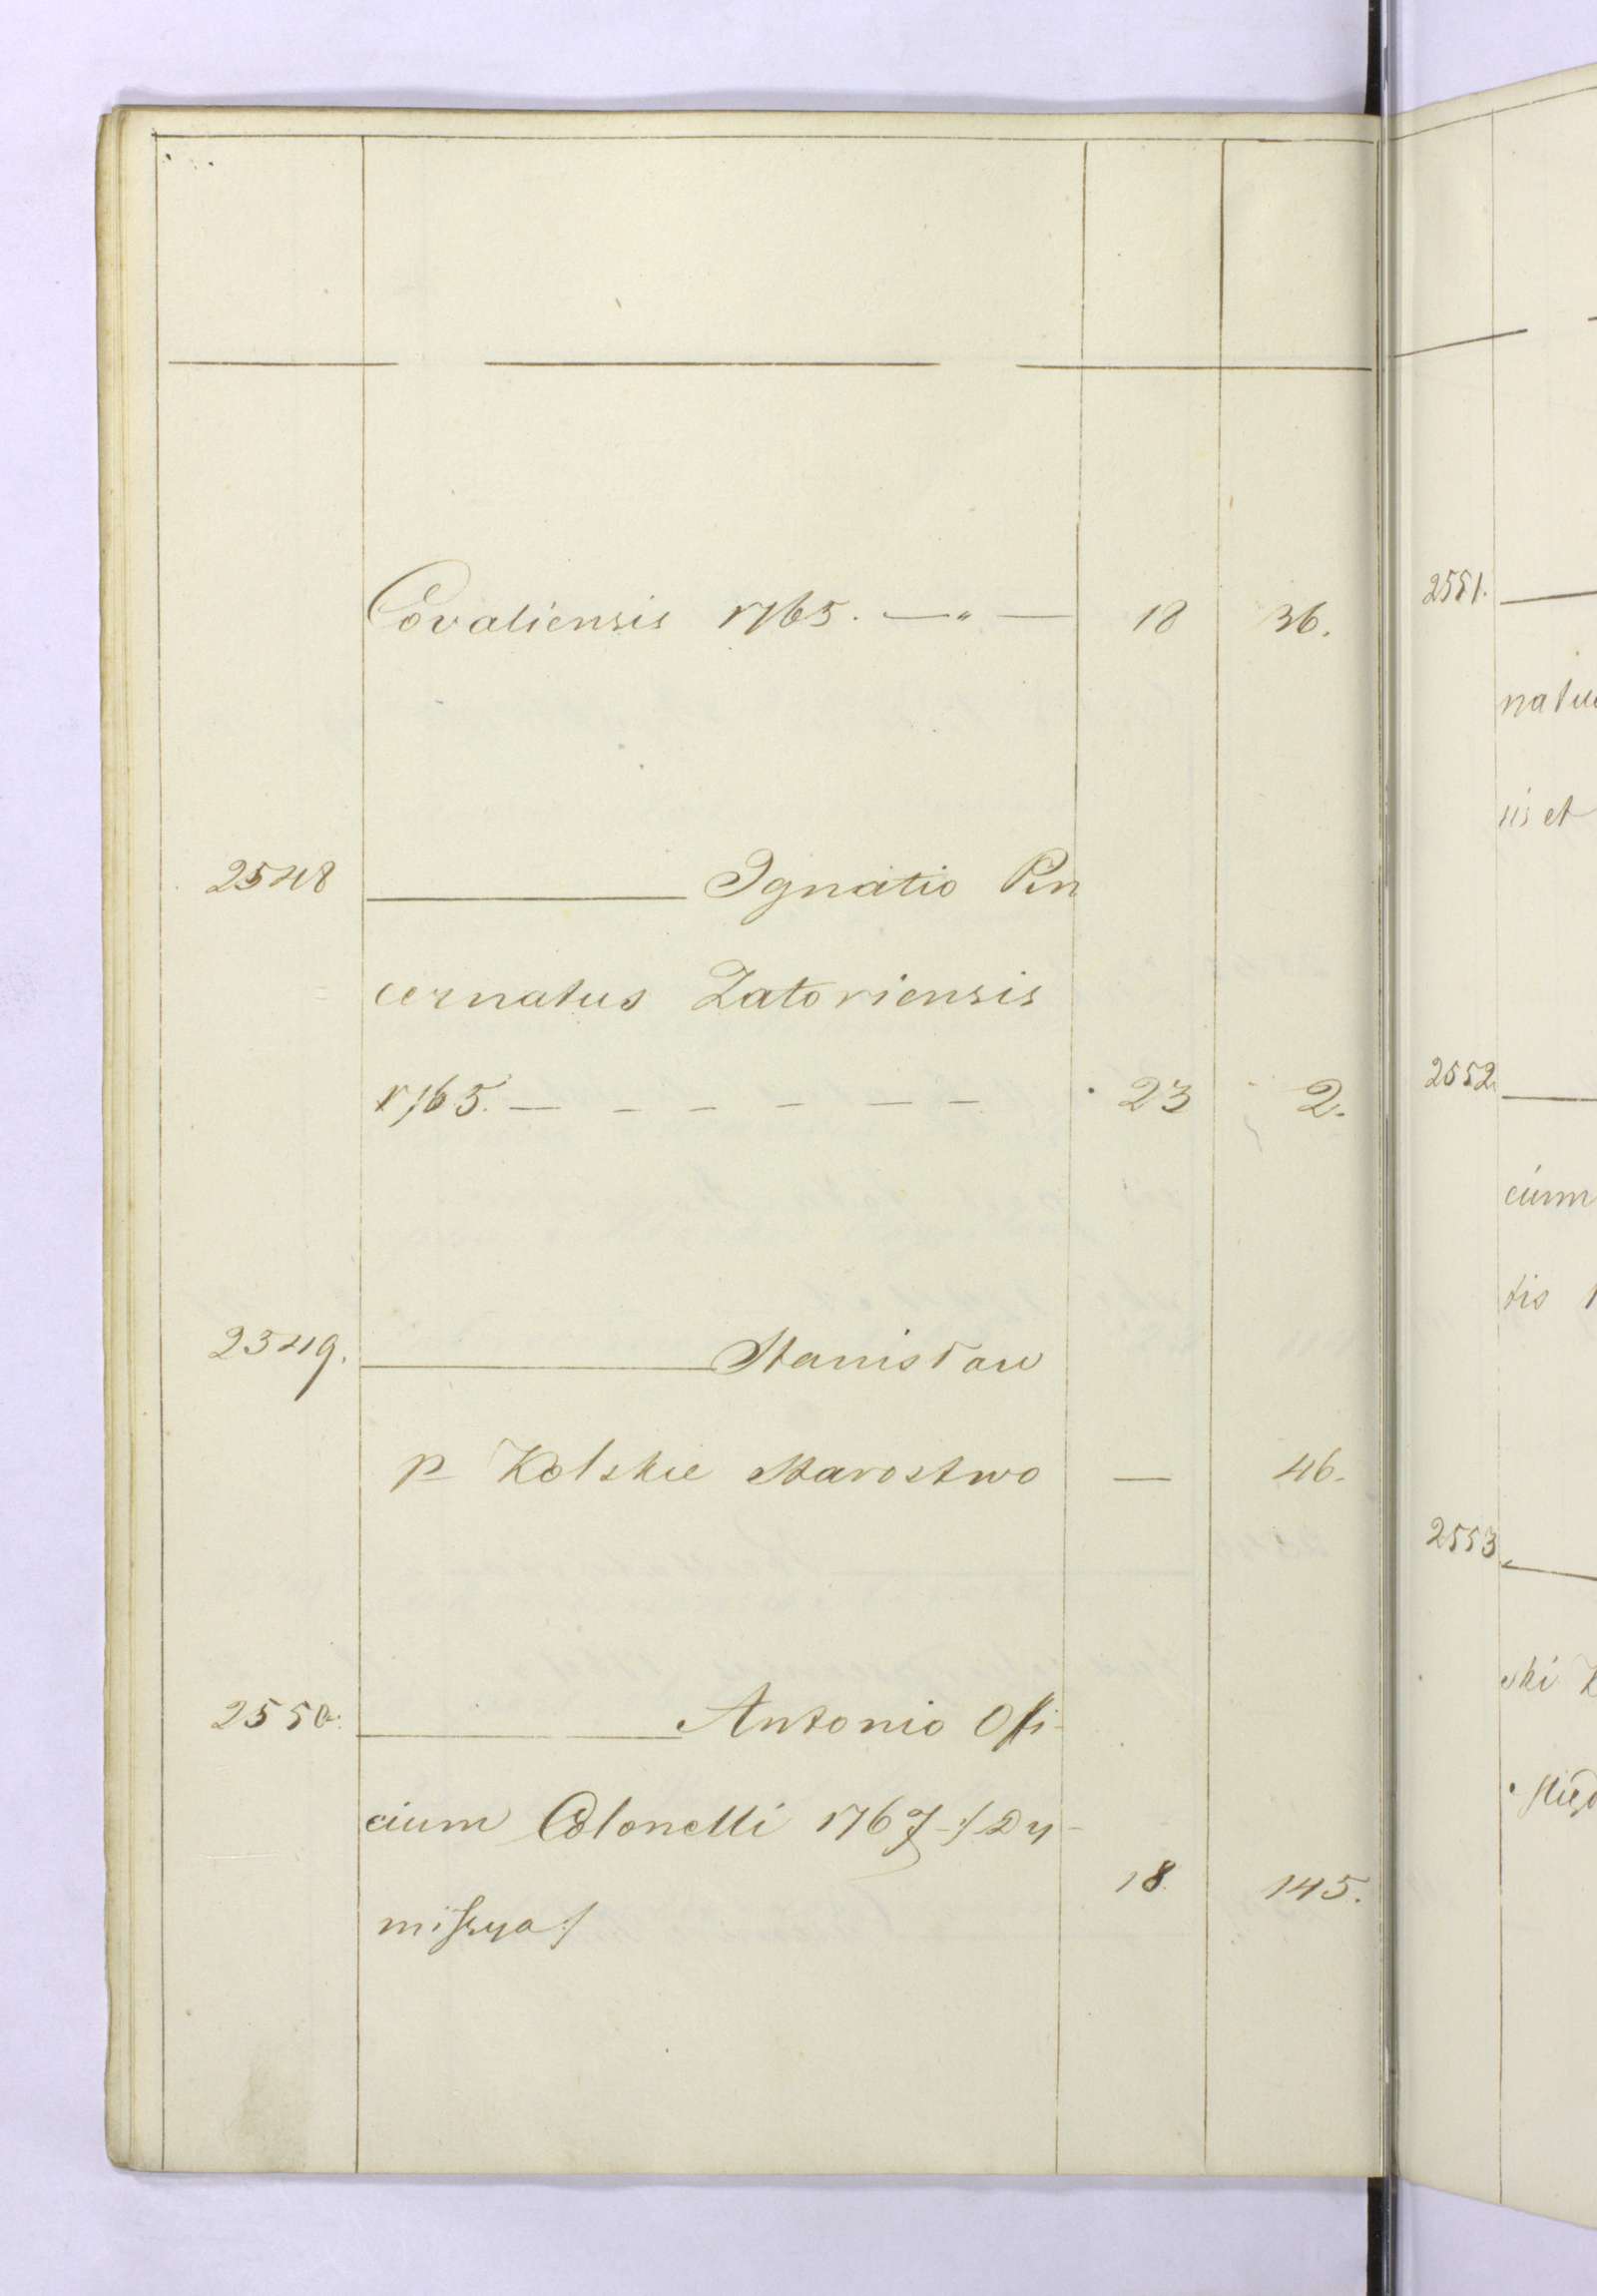 Covaliensis 1765. —"— 18 36.
2548 ——— Ignatio Pin
cernatus Zatoriensis
1765. — — — — — — 23 2.
2549. ——— Stanisław
p Kolskie Starostwo — 46.
2550. ——— Antonio Offi-
cium Colonelli 1767 :/ Dy-
18. 145.
missya :/
2551. ———
natus
sis et
2552. ———
cium
tis
2553. ———
ski